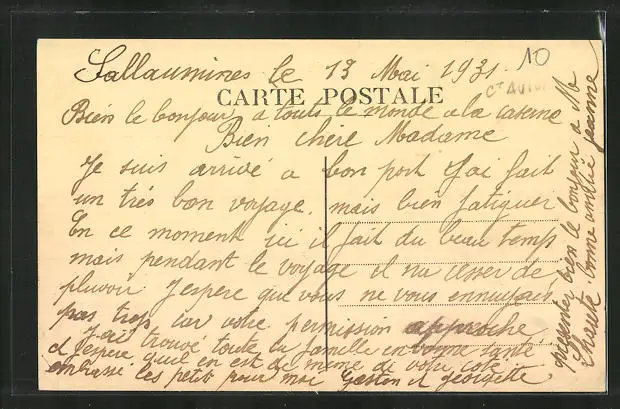 Sallaumines le 13 Mai 1931.
10
CARTE POSTALE
Bien le bonjour a touts le monde a la caserne
Bien chère Madame
Je suis arrivé a bon port J'ai fait
un très bon voyage. mais bien fatiguer
En ce moment ici il fait du beau temp
mais pendant le voyage il na cesser de
pluvoir J'espere que vous ne vous ennuyais
pas trop, car votre permission approche
J'ai trouvé toute la famille en bonne santé
et J'espere qu'il en est de même de votre coté
embrassé les petit pour moi Gaston et Georgette
presenter bien le bonjour a Mr
bonne amitié Jeanne